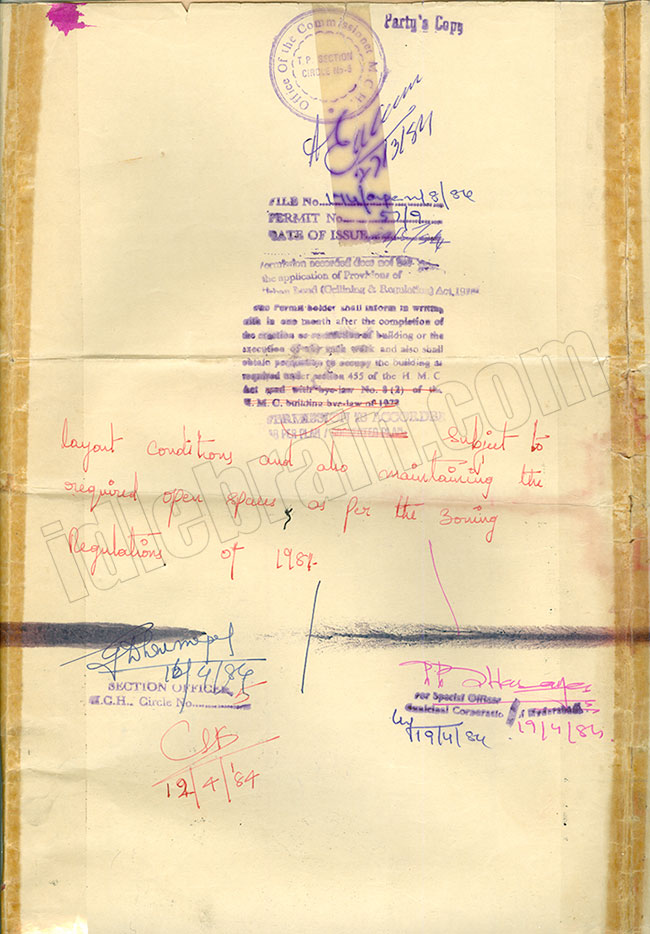 Party's Copy
Office Of the Commissioner M.C.H.
T.P. SECTION
CIRCLE No-
27/3/84
FILE No. /8/84
PERMIT No. 57/9
DATE OF ISSUE
accorded does not
the application of Provisions of
Land (Ceilining & Regulation) Act, 19
Permit holder shall inform in writing
in one month after the completion of
the erection or of building or the
execution of work and also shall
obtain permission to occupy the building as
required under section 455 of the H M C
Act with bye-law No. 8 (2) of the
M. C. building bye-law of 1972
PERMISSION IS ACCORDED
AS PER PLAN /
Subject to
layout conditions and also maintaining the
required open spaces as per the Zoning
Regulations of 1981.
16/4/84
SECTION OFFICER
M.C.H., Circle No. 5
19/4/84
For Special Officer
Municipal Corporation of Hyderabad
19/4/84
19/4/84
idlebrain.com